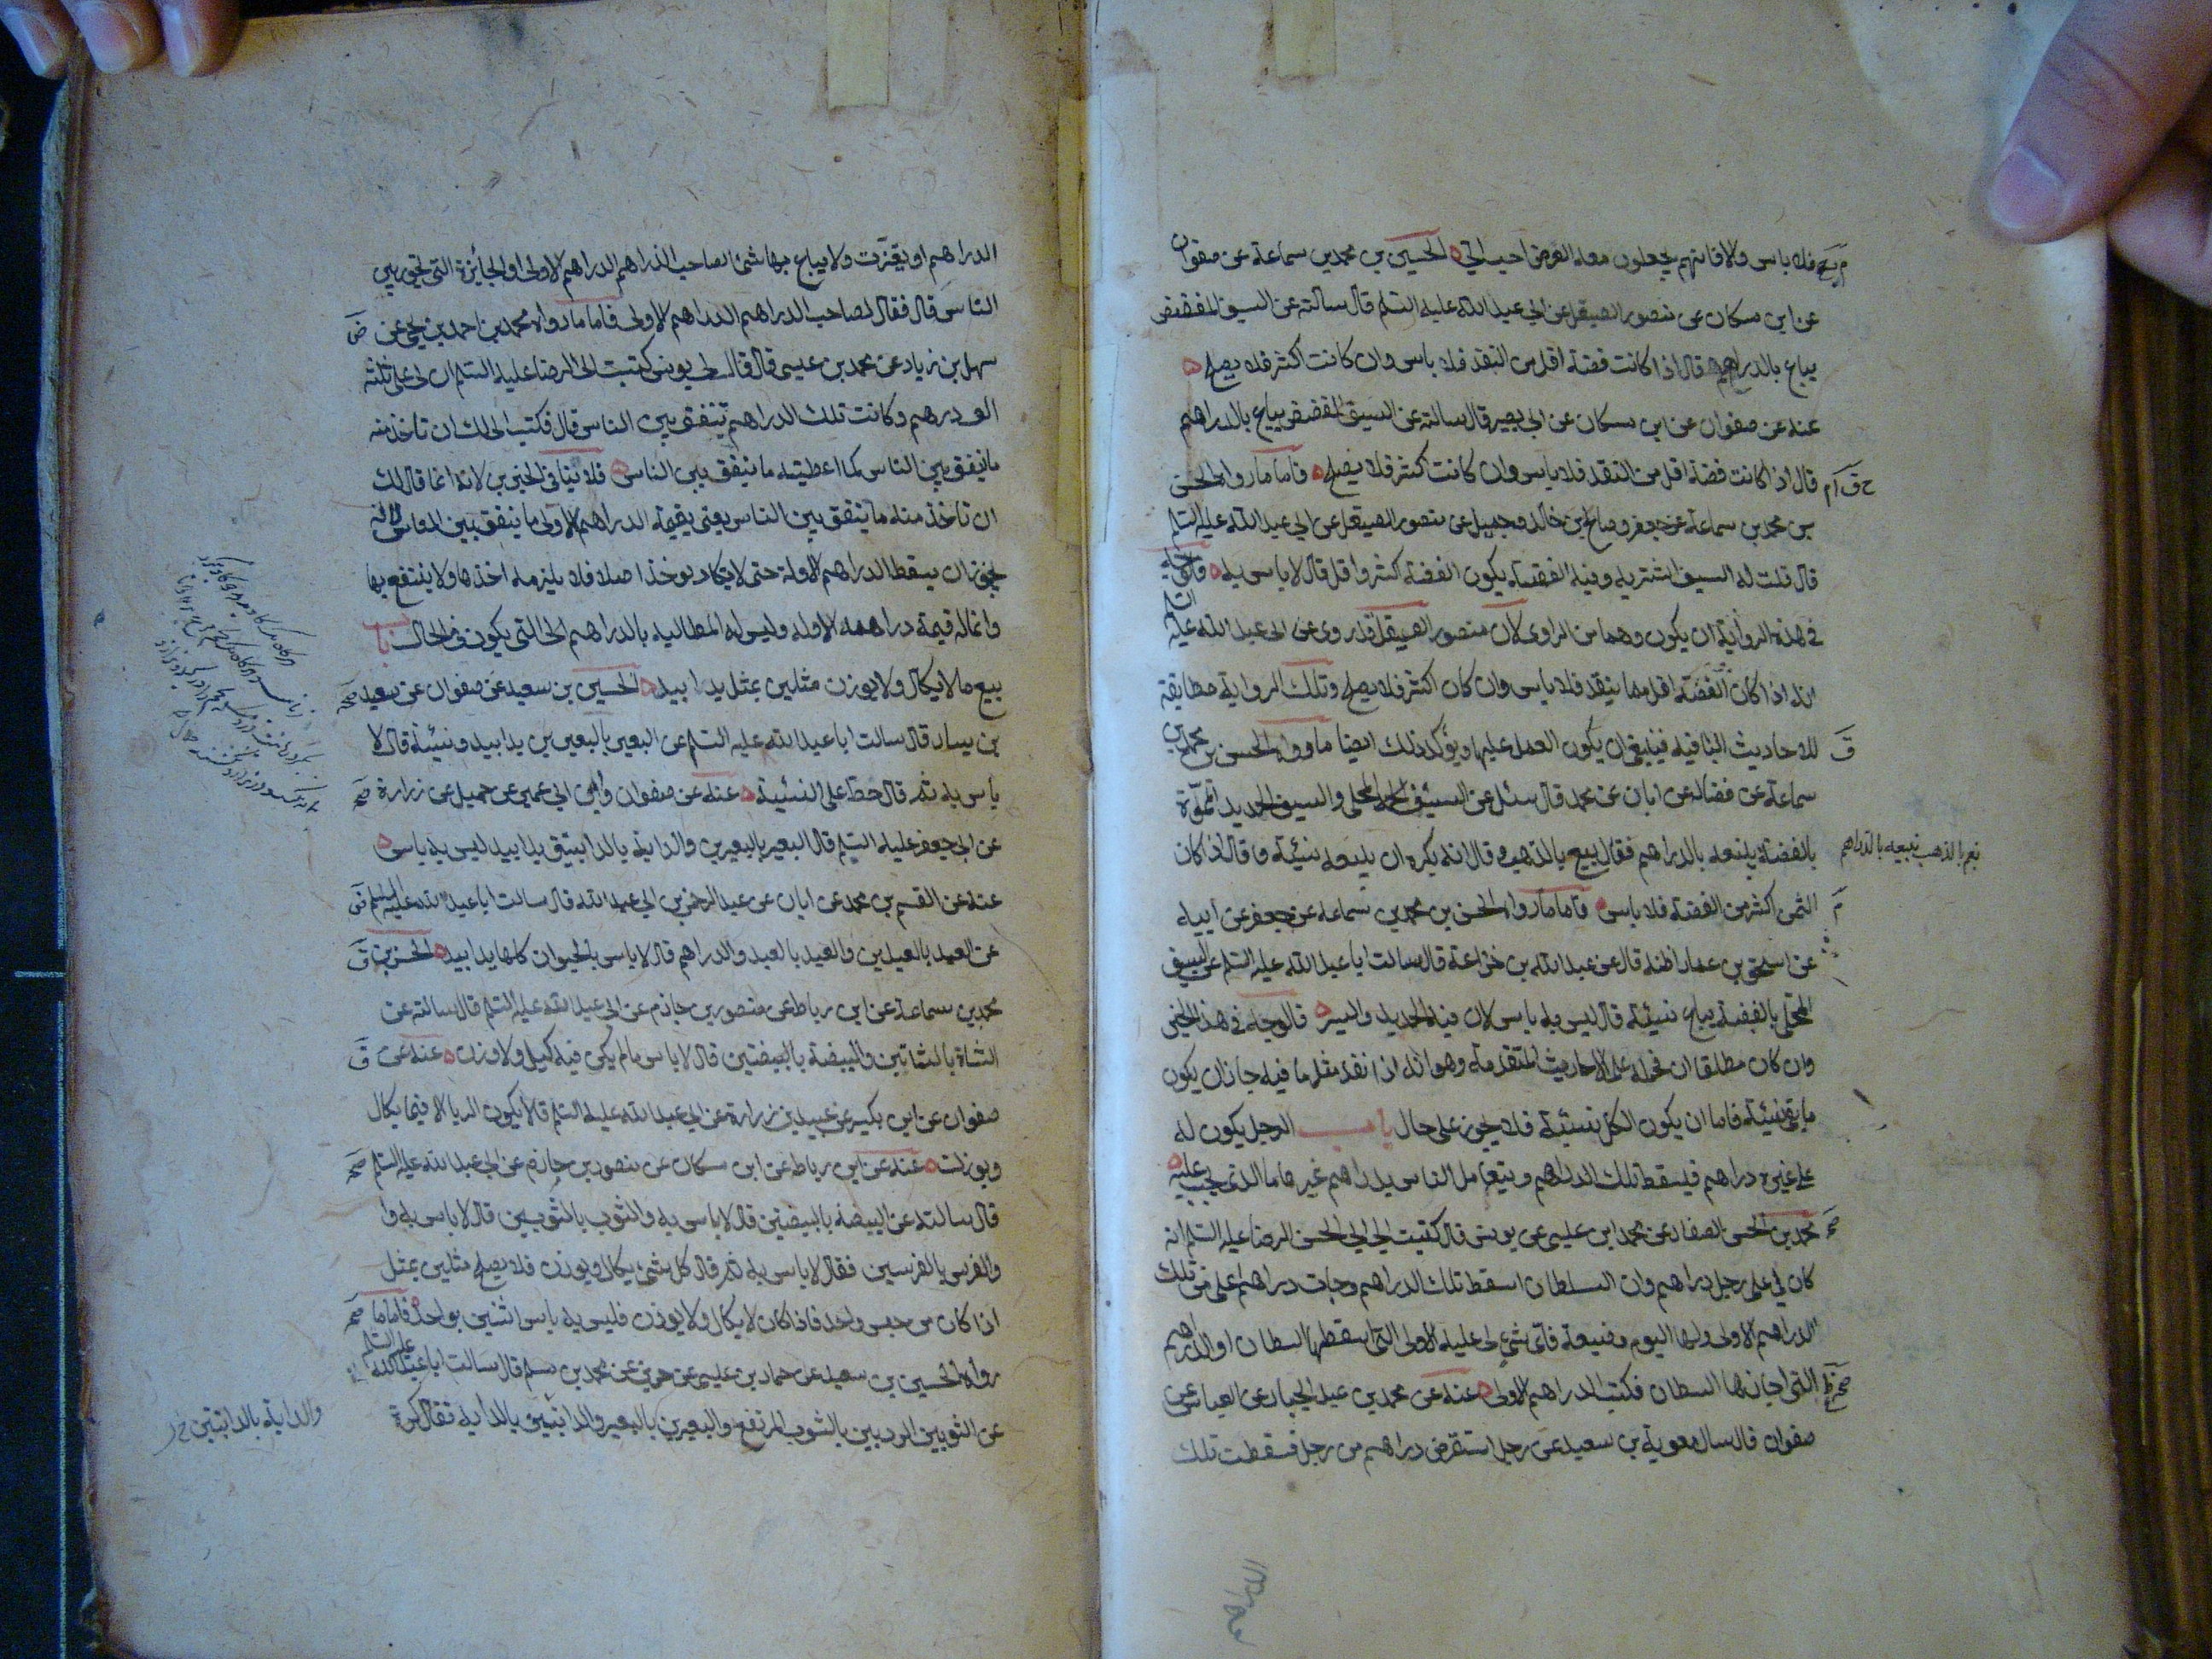 فلا باس والا فانهم يجعلون معه العرض احب الي الحسين بن محمد بن سماعة عن صفوان
عن ابن مسكان عن منصور الصيقل عن ابي عبد الله عليه السلم قال سالته عن السيف المفضض
يباع بالدراهم قال اذا كانت فضته اقل من النقد فلا باس وان كانت اكثر فلا يصلح
عنه عن صفوان عن ابن مسكان عن ابي بصير قال سالته عن السيف المفضض يباع بالدراهم
قال اذا كانت فضته اقل من النقد فلا باس وان كانت اكثر فلا يصلح فاما ما رواه الحسن
بن محمد بن سماعة عن جعفر وصالح بن خالد وجميل عن منصور الصيقل عن ابي عبد الله عليه السلم
قال قلت له السيف اشتريه وفيه الفضة يكون الفضة اكثر واقل قال لا باس به فالوجه
في هذه الرواية ان يكون وهما من الراوي لان منصور الصيقل قد روى عن ابي عبد الله عليه السلم
انه اذا كان الفضة اقل مما ينقد فلا باس وان كان اكثر فلا يصلح وتلك الرواية مطابقة
للاحاديث الباقية فينبغي ان يكون العمل عليها ويؤكد ذلك ايضا ما رواه الحسن بن محمد بن
سماعة عن فضالة عن ابان عن محمد قال سئل عن السيف المحلى والسيف الحديد المموه
بالفضة يبيعه بالدراهم فقال يبيع بالذهب وقال انه يكره ان يبيعه نسيئة وقال اذا كان
نعم بالذهب نبيعه بالدراهم
الثمن اكثر من الفضة فلا باس فاما ما رواه الحسن بن محمد بن سماعة عن جعفر عن ابيه
عن اسحق بن عمار اظنه قال عن عبد الله بن خزاعة قال سالت ابا عبد الله عليه السلم عن السيف
المحلى بالفضة يباع نسيئة قال ليس به باس لان فيه الحديد والسير فالوجه في هذا الخبر
وان كان مطلقا ان نحمله على الاحاديث المتقدمة وهو انه اذا نقد مثل ما فيه جاز ان يكون
ما بقي نسيئة فاما ان يكون الكل نسيئة فلا يجوز على حال باب الرجل يكون له
على غيره دراهم فيسقط تلك الدراهم ويتعامل الناس بدراهم غيرها ما الذي يجب عليه
محمد بن الحسن الصفار عن محمد ابن عيسى عن يونس قال كتبت الى ابي الحسن الرضا عليه السلم انه
كان لي على رجل دراهم وان السلطان اسقط تلك الدراهم وجاءت دراهم اعلى من تلك
الدراهم الاولى ولها اليوم وضيعة فاي شئ لي عليه الاولى التي اسقطها السلطان او الدراهم
التي اجازها السلطان فكتب الدراهم الاولى عنه عن محمد بن عبد الجبار عن العباس عن
صفوان قال سال معوية بن سعيد عن رجل استقرض دراهم من رجل فسقطت تلك
الدراهم او تغيرت ولا يباع بها شئ الصاحب الدراهم الدراهم الاولى او الجايزة التي تجوز بين
الناس قال فقال لصاحب الدراهم الدراهم الاولى فاما ما رواه محمد بن احمد بن يحيى عن
سهل بن زياد عن محمد بن عيسى قال قال لي يونس كتبت الى الرضا عليه السلم ان لي على رجل ثلثة
الف درهم وكانت تلك الدراهم تنفق بين الناس قال فكتب الي لك ان تاخذ منه
ما ينفق بين الناس كما اعطيته ما ينفق بين الناس فلا ينافي الخبرين لانه انما قال لك
ان تاخذ منه ما ينفق بين الناس يعني بقيمة الدراهم الاولى ما ينفق بين الناس لانه
يجوز ان يسقط الدراهم الاولة حتى لا يكاد يوخذ اصلا فلا يلزمه اخذها ولا ينتفع بها
وانما له قيمة دراهمه الاولة وليس له المطالبة بالدراهم التي يكون في الحال باب
بيع ما لا يكال ولا يوزن مثلين بمثل يدا بيد الحسين بن سعيد عن صفوان عن سعيد
بن يسار قال سالت ابا عبد الله عليه السلم عن البعير بالبعيرين يدا بيد ونسيئة قال لا
باس به ثم قال خط على النسيئة عنه عن صفوان وابن ابي عمير عن جميل عن زرارة
عن ابي جعفر عليه السلم قال البعير بالبعيرين والدابة بالدابتين يدا بيد ليس به باس
عنه عن القسم بن محمد عن ابان عن عبد الرحمن بن ابي عبد الله قال سالت ابا عبد الله عليه السلم
عن العبد بالعبدين والعبد بالعبد والدراهم قال لا باس بالحيوان كلها يدا بيد الحسن بن
محمد بن سماعة عن ابن رباط عن منصور بن حازم عن ابي عبد الله عليه السلم قال سالته عن
الشاة بالشاتين والبيضة بالبيضتين قال لا باس ما لم يكن فيه كيل ولا وزن عنه عن
صفوان عن ابن بكير عن عبيد بن زرارة عن ابي عبد الله عليه السلم قال لا يكون الربا الا فيما يكال
ويوزن عنه عن ابن رباط عن ابن مسكان عن منصور بن حازم عن ابي عبد الله عليه السلم
قال سالته عن البيضة بالبيضتين قال لا باس به والثوب بالثوبين قال لا باس به وا
والفرس بالفرسين فقال لا باس به ثم قال كل شئ يكال ويوزن فلا يصلح مثلين بمثل
اذا كان من جنس واحد فاذا كان لا يكال ولا يوزن فليس به باس اثنين بواحد فاما ما
رواه الحسين بن سعيد عن حماد بن عيسى عن حريز عن محمد بن مسلم قال سالت ابا عبد الله عليه السلم
عن الثوبين الرديين بالثوب المرتفع والبعيرين بالبعير والدابتين بالدابة فقال كره
والدابة بالدابتين